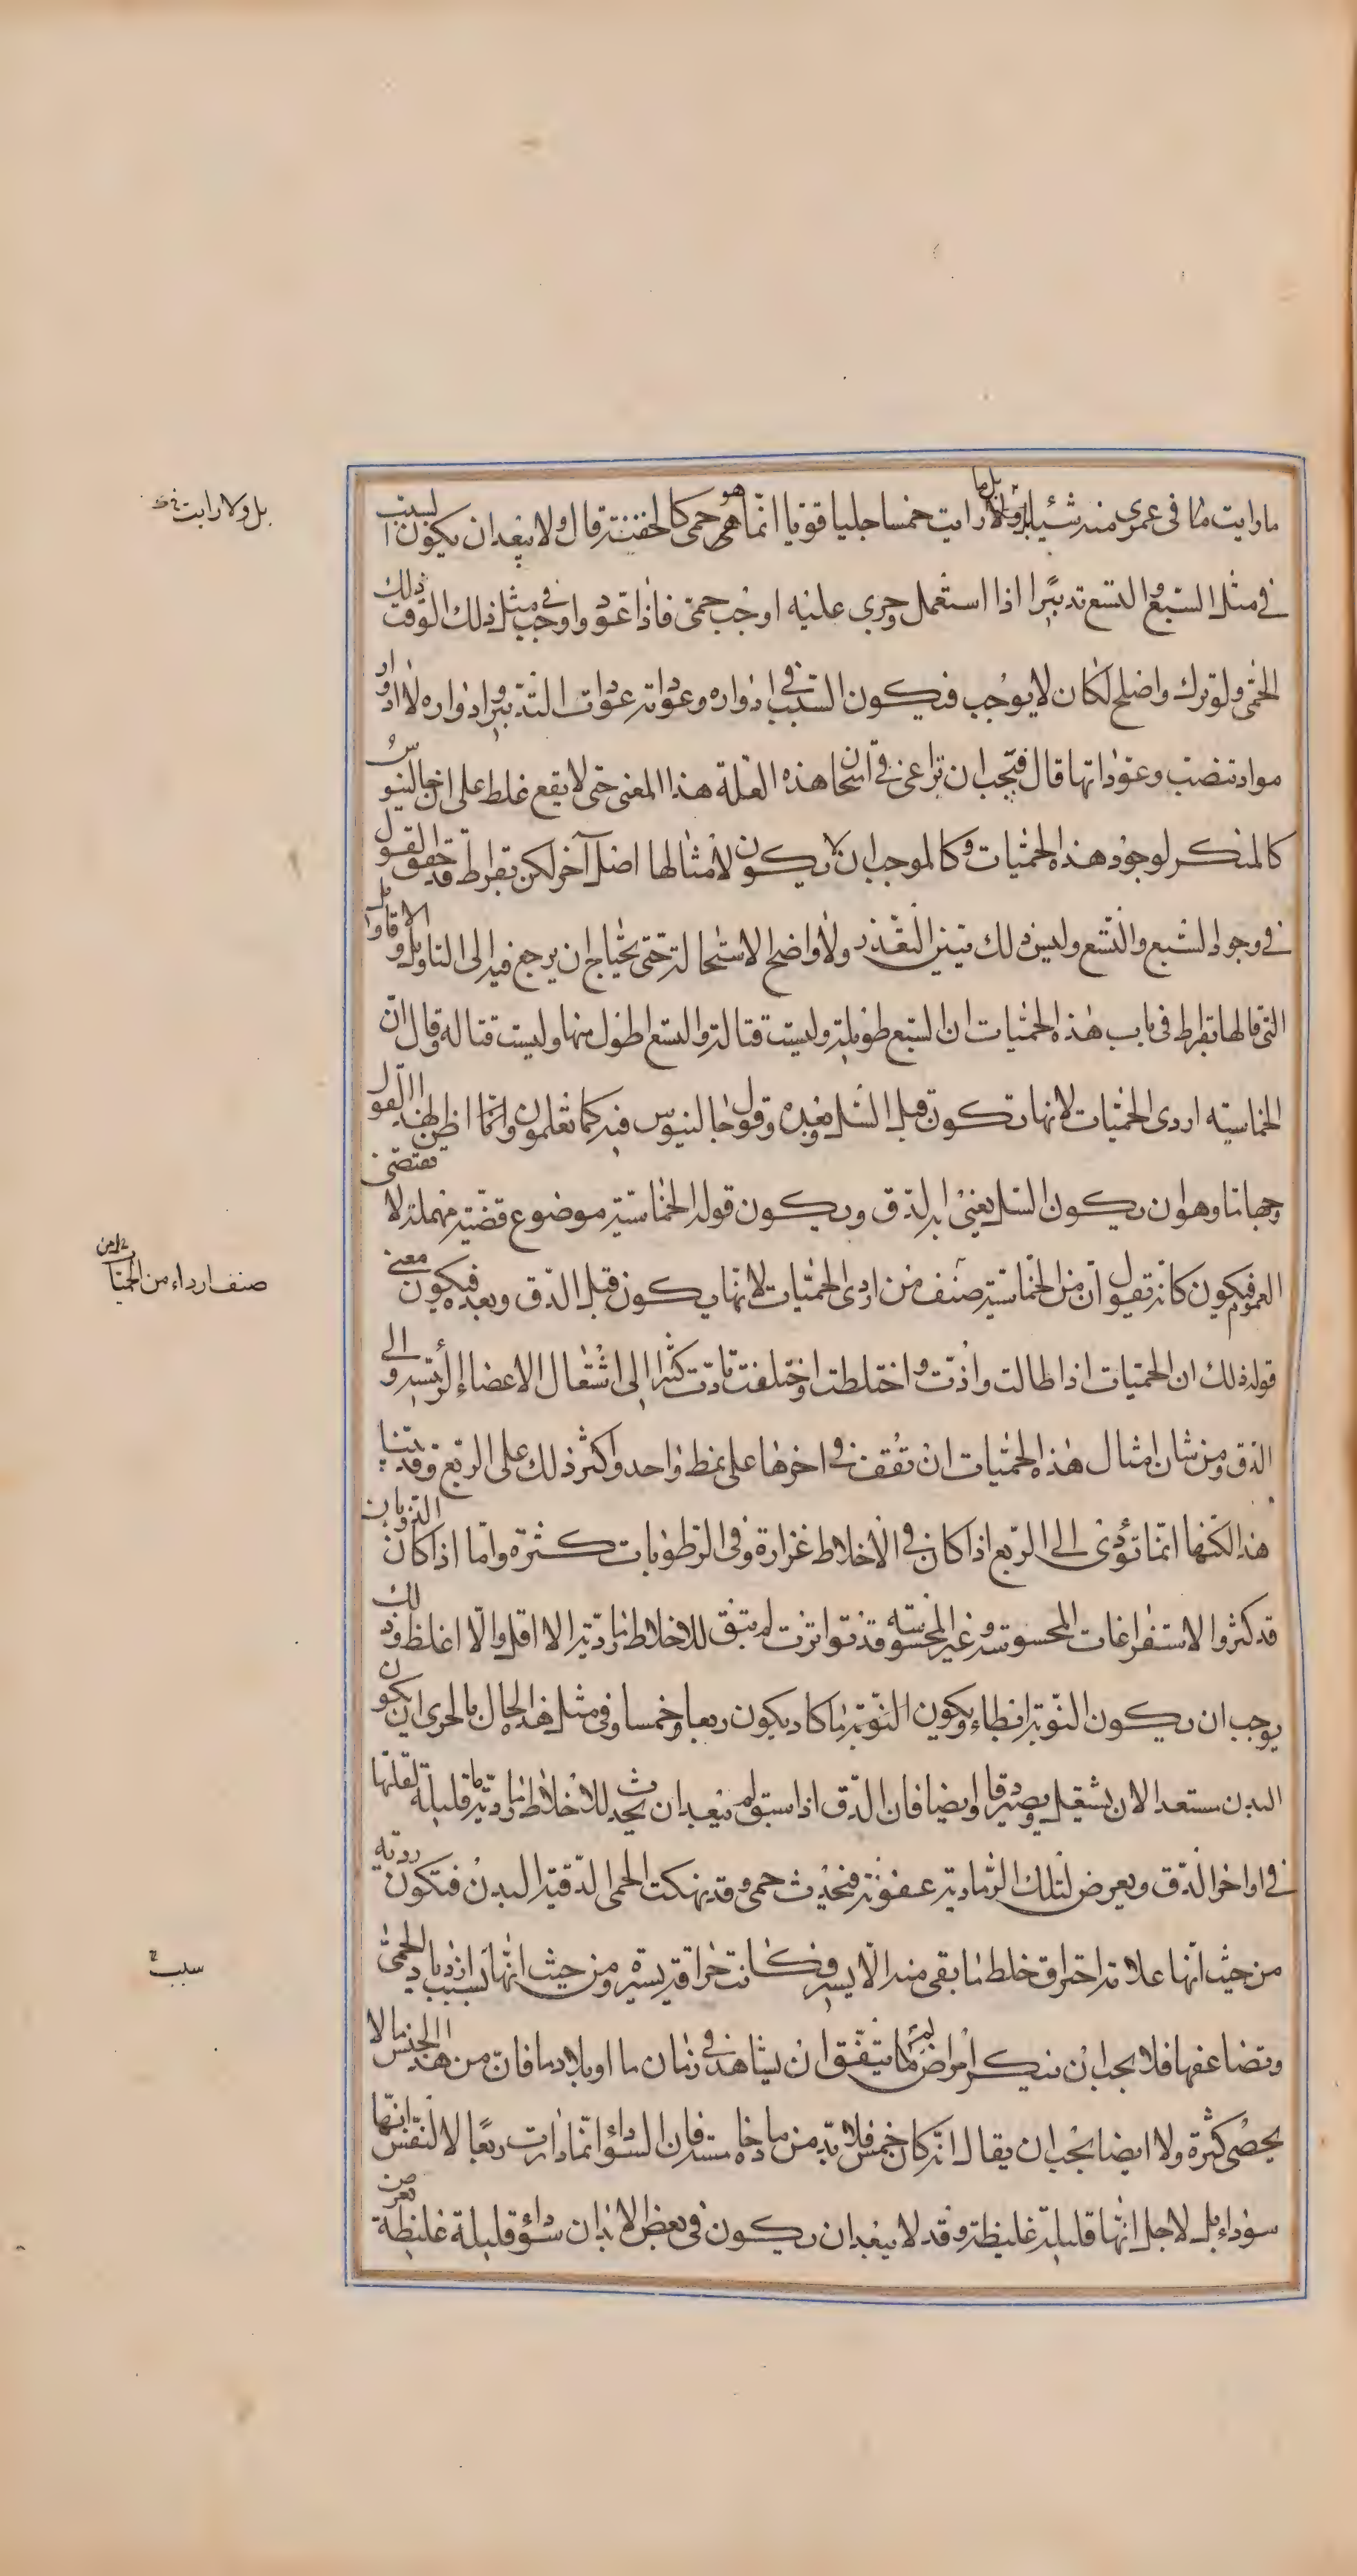 ما رايت ما فى عمرى منه شيئا بل ولا رايت خمسا جليا قويا انما هى حمى كالخفية قال ولا يبعد ان يكون السبب
فى مثل السبع والتسع تدبيرا اذا استعمل وجرى عليه اوجب حمى فاذا عود واوجب فى مثل ذلك الوقت
الحمى ولو ترك واصلح لكان لا يوجب فيكون السبب فى ادواره وعوداته عودات التدبير وادواره لا ادوار
مواد تنصب وعوداتها قال فيجب ان تراعى فى امتحان هذه العلة هذا المعنى حتى لا يقع غلط على ان جالينوس
كالمنكر لوجود هذه الحميات وكالموجب ان لا يكون لامثالها اصل آخر لكن بقراط قد حقق القول
فى وجود السبع والتسع وليس ذلك متبين التعذر ولا واضح الاستحالة حتى يحتاج ان يرجع فيه الى التاويل والاقاويل
التى قالها بقراط فى باب هذه الحميات ان السبع طويلة وليست قتالة والتسع اطول منها وليست قتالة وقال ان
الخماسية اردى الحميات لانها تكون قبل السل وبعده وقول جالينوس فيه كما تعلمون وانما اظن لهذا القول
وجها ما وهو ان يكون السل يعنى به الدق ويكون قوله الخماسية موضوع قضية مهملة لا تقتضى
العموم فيكون كانه يقول ان من الخماسية صنف من اردى الحميات لانها يكون قبل الدق وبعده فيكون معنى
قوله ذلك ان الحميات اذا طالت واذت واختلطت واختلفت تادت كثيرا الى اشتعال الاعضاء الرئيسة والى
الدق ومن شان امثال هذه الحميات ان تقف فى اخرها على نمط واحد واكثر ذلك على الربع وقد بينا
هذا لكنها انما تؤدى الى الربع اذا كان فى الاخلاط غزارة وفى الرطوبات كثرة واما اذا كان الذوبان
قد كثر والاستفراغات المحسوسة وغير المحسوسة قد تواترت لم تبق للاخلاط رمادية الا اقل والا اغلظ وذلك
يوجب ان يكون النوبة ابطاء ويكون النوبة ما كاد يكون ربعا وخمسا وفى مثل هذا الحال بالحرى ان يكون
البدن مستعدا لان يشتعل ويصير دقا وايضا فان الدق اذا سبق لم يبعد ان يحدث للاخلاط رمادية ما قليلة لقلتها
فى اواخر الدق ويعرض لتلك الرمادية عفونة فتحدث حمى وقد نهكت الحمى الدقية البدن فتكون ردية
من حيث انها علامة احتراق خلط ما بقى منه الا يسير فكانت حراقة يسيرة ومن حيث انها بسبب ازدياد الحمى
وتضاعفها فلا يجب ان ينكر امراض لم يتفق ان يشاهد فى زمان ما او بلاد ما فان من هذا الجنس ما لا
يحصى كثرة ولا ايضا يجب ان يقال انه كان خمس فلا بد من مادة خامسة فان السوداء انما دارت ربعا لا لنفس انها
سوداء بل لاجل انها قليلة غليظة وقد لا يبعد ان يكون فى بعض الابدان سوداء قليلة غليظة تعرض
بل ولا رايت
صنف ارداء من الحميات
سبب